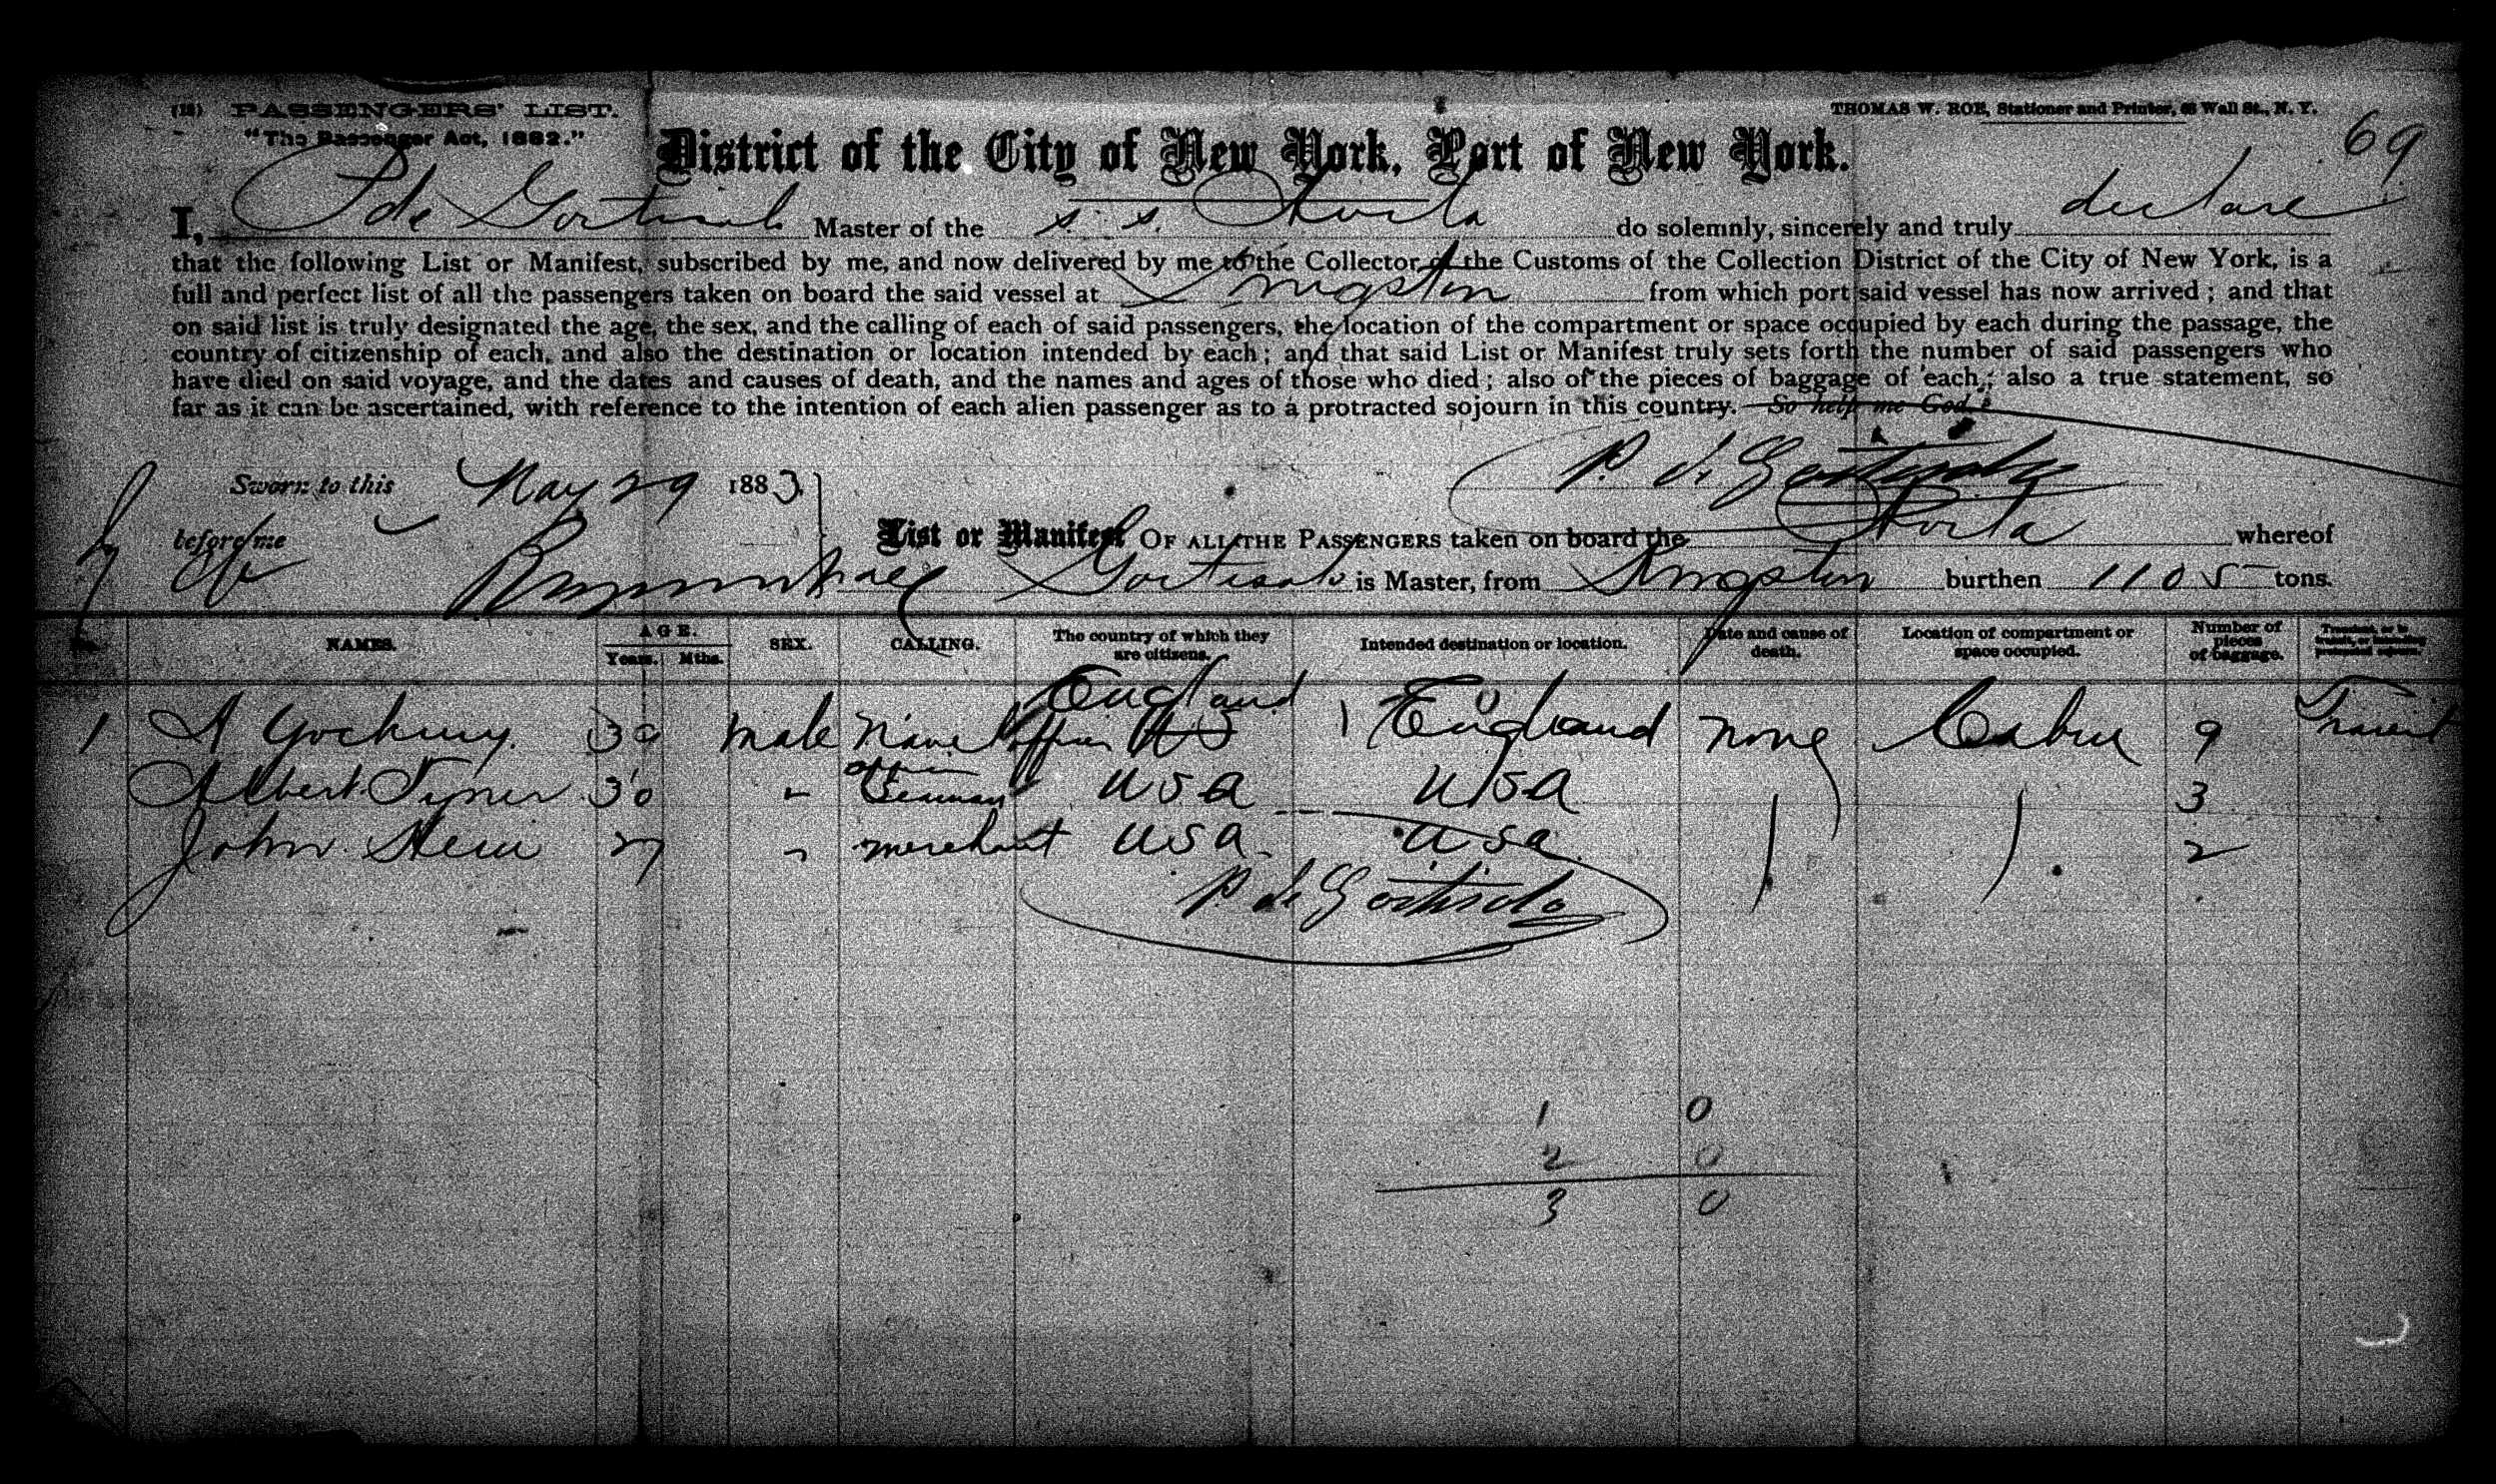 (18) PASSENGERS' LIST.
THOMAS W. ROE, Stationer and Printer, Wall St., N. Y.
"The Passenger Act, 1882."
69
District of the City of New York, Port of New York.
I, P de Master of the s. s. do solemnly, sincerely and truly declare
that the following List or Manifest, subscribed by me, and now delivered by me to the Collector of the Customs of the Collection District of the City of New York, is a
full and perfect list of all the passengers taken on board the said vessel at Kingston from which port said vessel has now arrived; and that
on said list is truly designated the age, the sex, and the calling of each of said passengers, the location of the compartment or space occupied by each during the passage, the
country of citizenship of each, and also the destination or location intended by each; and that said List or Manifest truly sets forth the number of said passengers who
have died on said voyage, and the dates and causes of death, and the names and ages of those who died; also of the pieces of baggage of each; also a true statement, so
far as it can be ascertained, with reference to the intention of each alien passenger as to a protracted sojourn in this country. So help me God.
P. de
Sworn to this May 29 1883
before me
List or Manifest OF ALL THE PASSENGERS taken on board the whereof
is Master, from Kingston burthen 1105 tons.
No. NAMES. AGE. Years. Mths. SEX. CALLING. The country of which they are citizens. Intended destination or location. Date and cause of death. Location of compartment or space occupied. Number of pieces of baggage. Transient, or in transit, or intending protracted sojourn.
England
1 A 30 male officer US England none Cabin 9 Transit
Albert 30 " USA USA 3
John 27 " merchant USA USA 2
P de
1 0
2 0
3 0